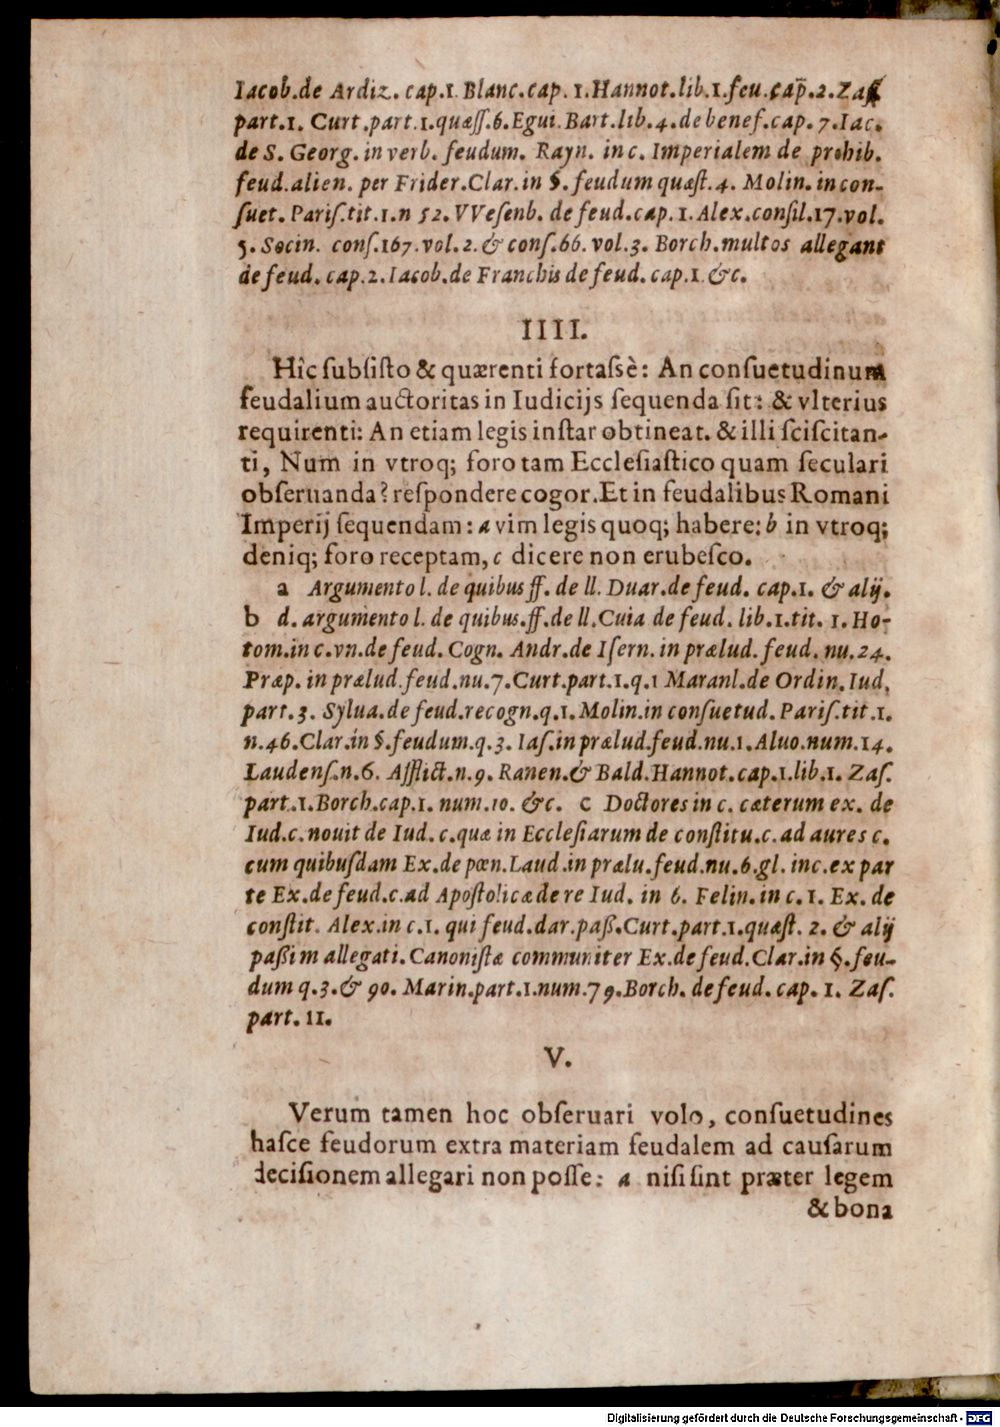 Iacob.de Ardiz. cap.1. Blanc.cap. 1.Hannot.lib.1.feu.cap̄.2.Zaſ
part.1. Curt.part.1.quæſſ.6.Egui.Bart.lib.4.de benef.cap. 7.Iac.
de S. Georg. in verb. feudum. Rayn. in c. Imperialem de prohib.
feud.alien. per Frider.Clar.in §.feudum quæſt.4. Molin. in con-
ſuet. Pariſ.tit.1.n 52. VVeſenb. de feud.cap. 1.Alex.conſil.17.vol.
5.Socin. conſ.167.vol.2.& conſ.66.vol.3. Borch.multos allegant
de feud. cap.2.Iacob.de Franchis de feud. cap.1. &c.
IIII.
Hîc ſubſiſto & quærenti fortaſsè: An conſuetudinum
feudalium auctoritas in Iudicijs ſequenda ſit: & vlterius
requirenti: An etiam legis inſtar obtineat. & illi ſciſcitan-
ti, Num in vtroq; foro tam Eccleſiaſtico quam ſeculari
obſeruanda? reſpondere cogor.Et in feudalibus Romani
Imperij ſequendam: a vim legis quoq; habere: b in vtroq;
deniq; foro receptam, c dicere non erubeſco.
a Argumento l. de quibus ff. de ll. Duar.de feud. cap.1. & alij.
b d. argumento l. de quibus.ff.de ll.Cuia de feud. lib.1.tit. 1.Ho-
tom.in c.vn.de feud. Cogn. Andr.de Iſern. in prælud. feud. nu.24.
Præp. in prælud.feud.nu.7.Curt.part.1.q.1 Maranl.de Ordin.Iud.
part.3. Sylua.de feud.recogn.q.1.Molin.in conſuetud. Pariſ.tit.1.
n.46.Clar.in §.feudum.q.3. Iaſ.in prælud.feud.nu.1.Aluo.num.14.
Laudenſ.n.6. Afflict.n.9. Ranen.& Bald.Hannot.cap.1.lib.1. Zaſ.
part.1.Borch.cap.1. num.10. &c. c Doctores in c. cæterum ex. de
Iud.c.nouit de Iud. c.quæ in Eccleſiarum de conſtitu.c.ad aures c.
cum quibuſdam Ex.de pœn.Laud.in prælu.feud.nu.6.gl. in c.ex par
te Ex.de feud.c.ad Apoſtolicæ de re Iud. in 6. Felin.in c.1. Ex. de
conſtit. Alex.in c.1. qui feud.dar.paß.Curt.part.1.quæſt. 2. & alij
paßim allegati.Canoniſtæ communiter Ex.de feud.Clar.in §.feu-
dum q.3.& 90. Marin.part.1.num.79.Borch. de feud. cap. 1. Zaſ.
part. 11.
V.
Verum tamen hoc obſeruari volo, conſuetudines
haſce feudorum extra materiam feudalem ad cauſarum
deciſionem allegari non poſſe: a niſi ſint præter legem
& bona
Digitalisierung gefördert durch die Deutsche Forschungsgemeinschaft - DFG